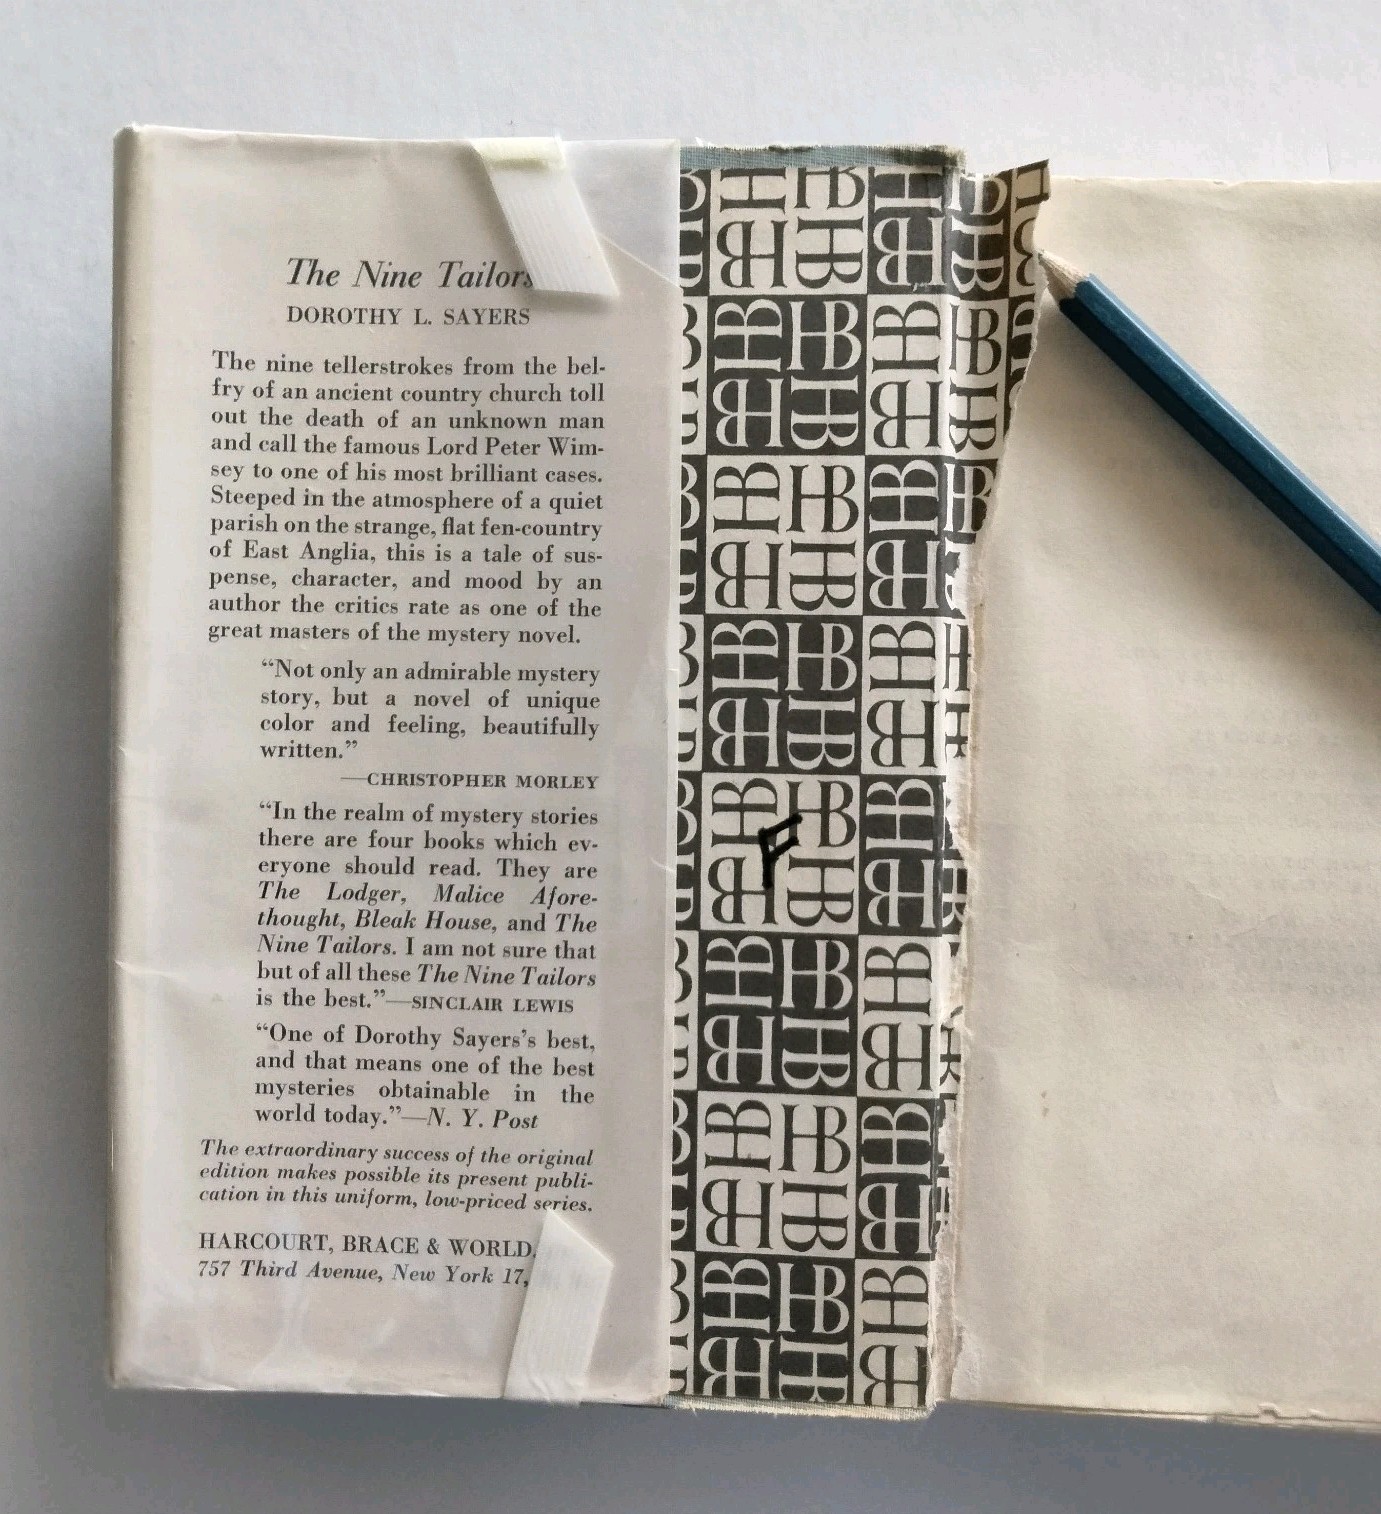 The Nine Tailors
DOROTHY L. SAYERS
The nine tellerstrokes from the bel-
fry of an ancient country church toll
out the death of an unknown man
and call the famous Lord Peter Wim-
sey to one of his most brilliant cases.
Steeped in the atmosphere of a quiet
parish on the strange, flat fen-country
of East Anglia, this is a tale of sus-
pense, character, and mood by an
author the critics rate as one of the
great masters of the mystery novel.
“Not only an admirable mystery
story, but a novel of unique
color and feeling, beautifully
written.”
—CHRISTOPHER MORLEY
“In the realm of mystery stories
there are four books which ev-
eryone should read. They are
The Lodger, Malice Afore-
thought, Bleak House, and The
Nine Tailors. I am not sure that
but of all these The Nine Tailors
is the best.”—SINCLAIR LEWIS
“One of Dorothy Sayers's best,
and that means one of the best
mysteries obtainable in the
world today.”—N. Y. Post
The extraordinary success of the original
edition makes possible its present publi-
cation in this uniform, low-priced series.
HARCOURT, BRACE & WORLD,
757 Third Avenue, New York 17,